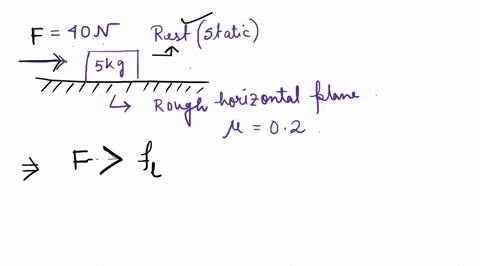 F = 40N Rest (static)
5kg
Rough horizontal plane
μ = 0.2
⇒ F > fL